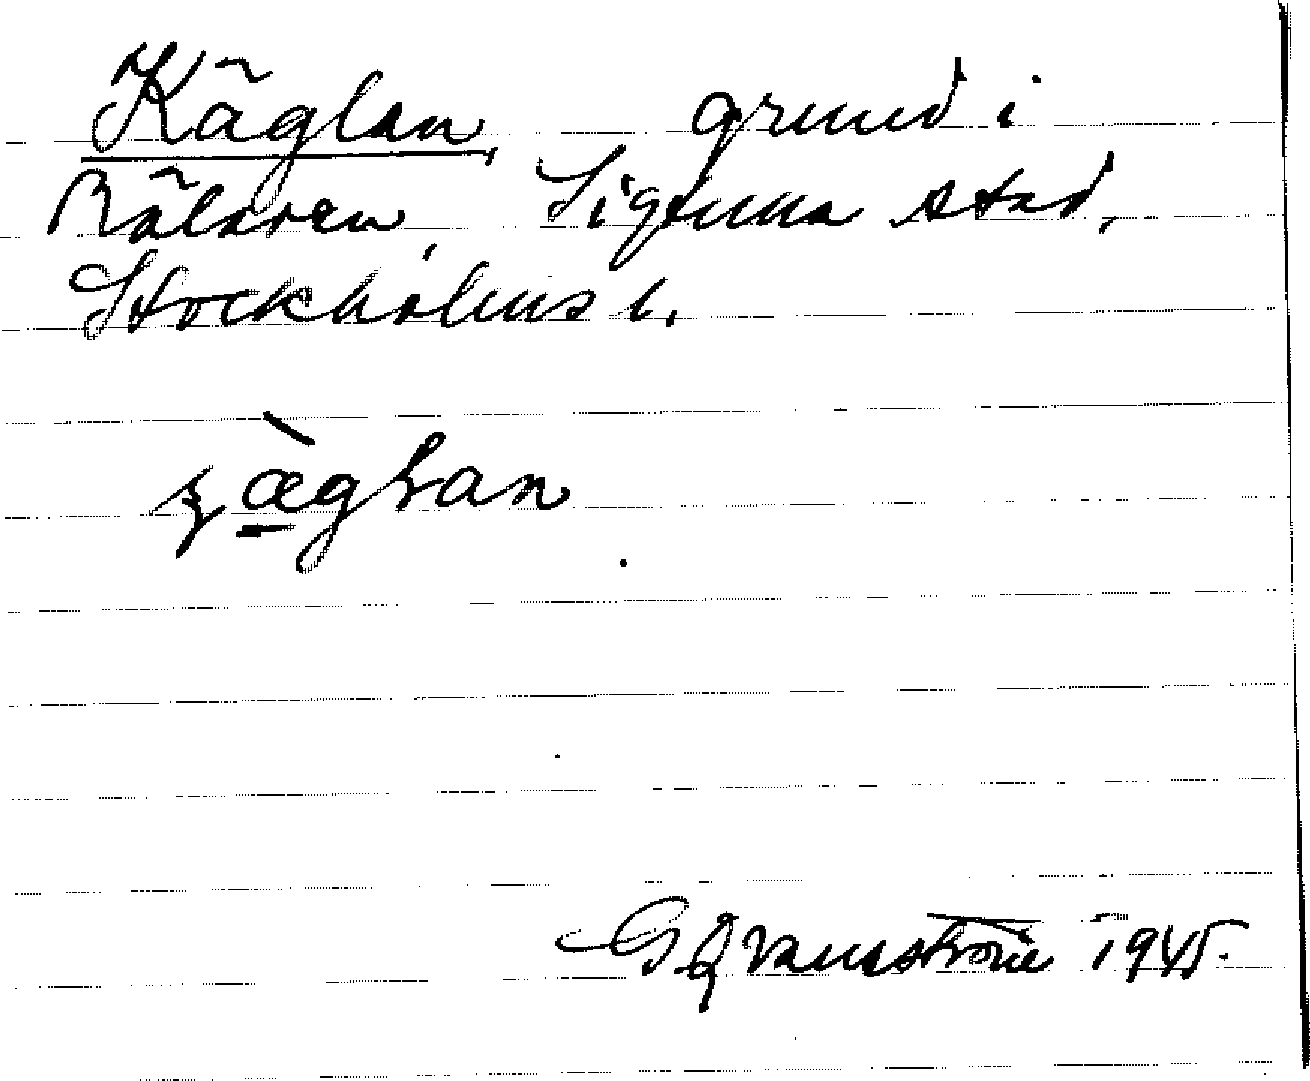 Käglan, grund i
Mälaren, Sigtuna stad,
Stockholms l.
G Qvarnström 1945.